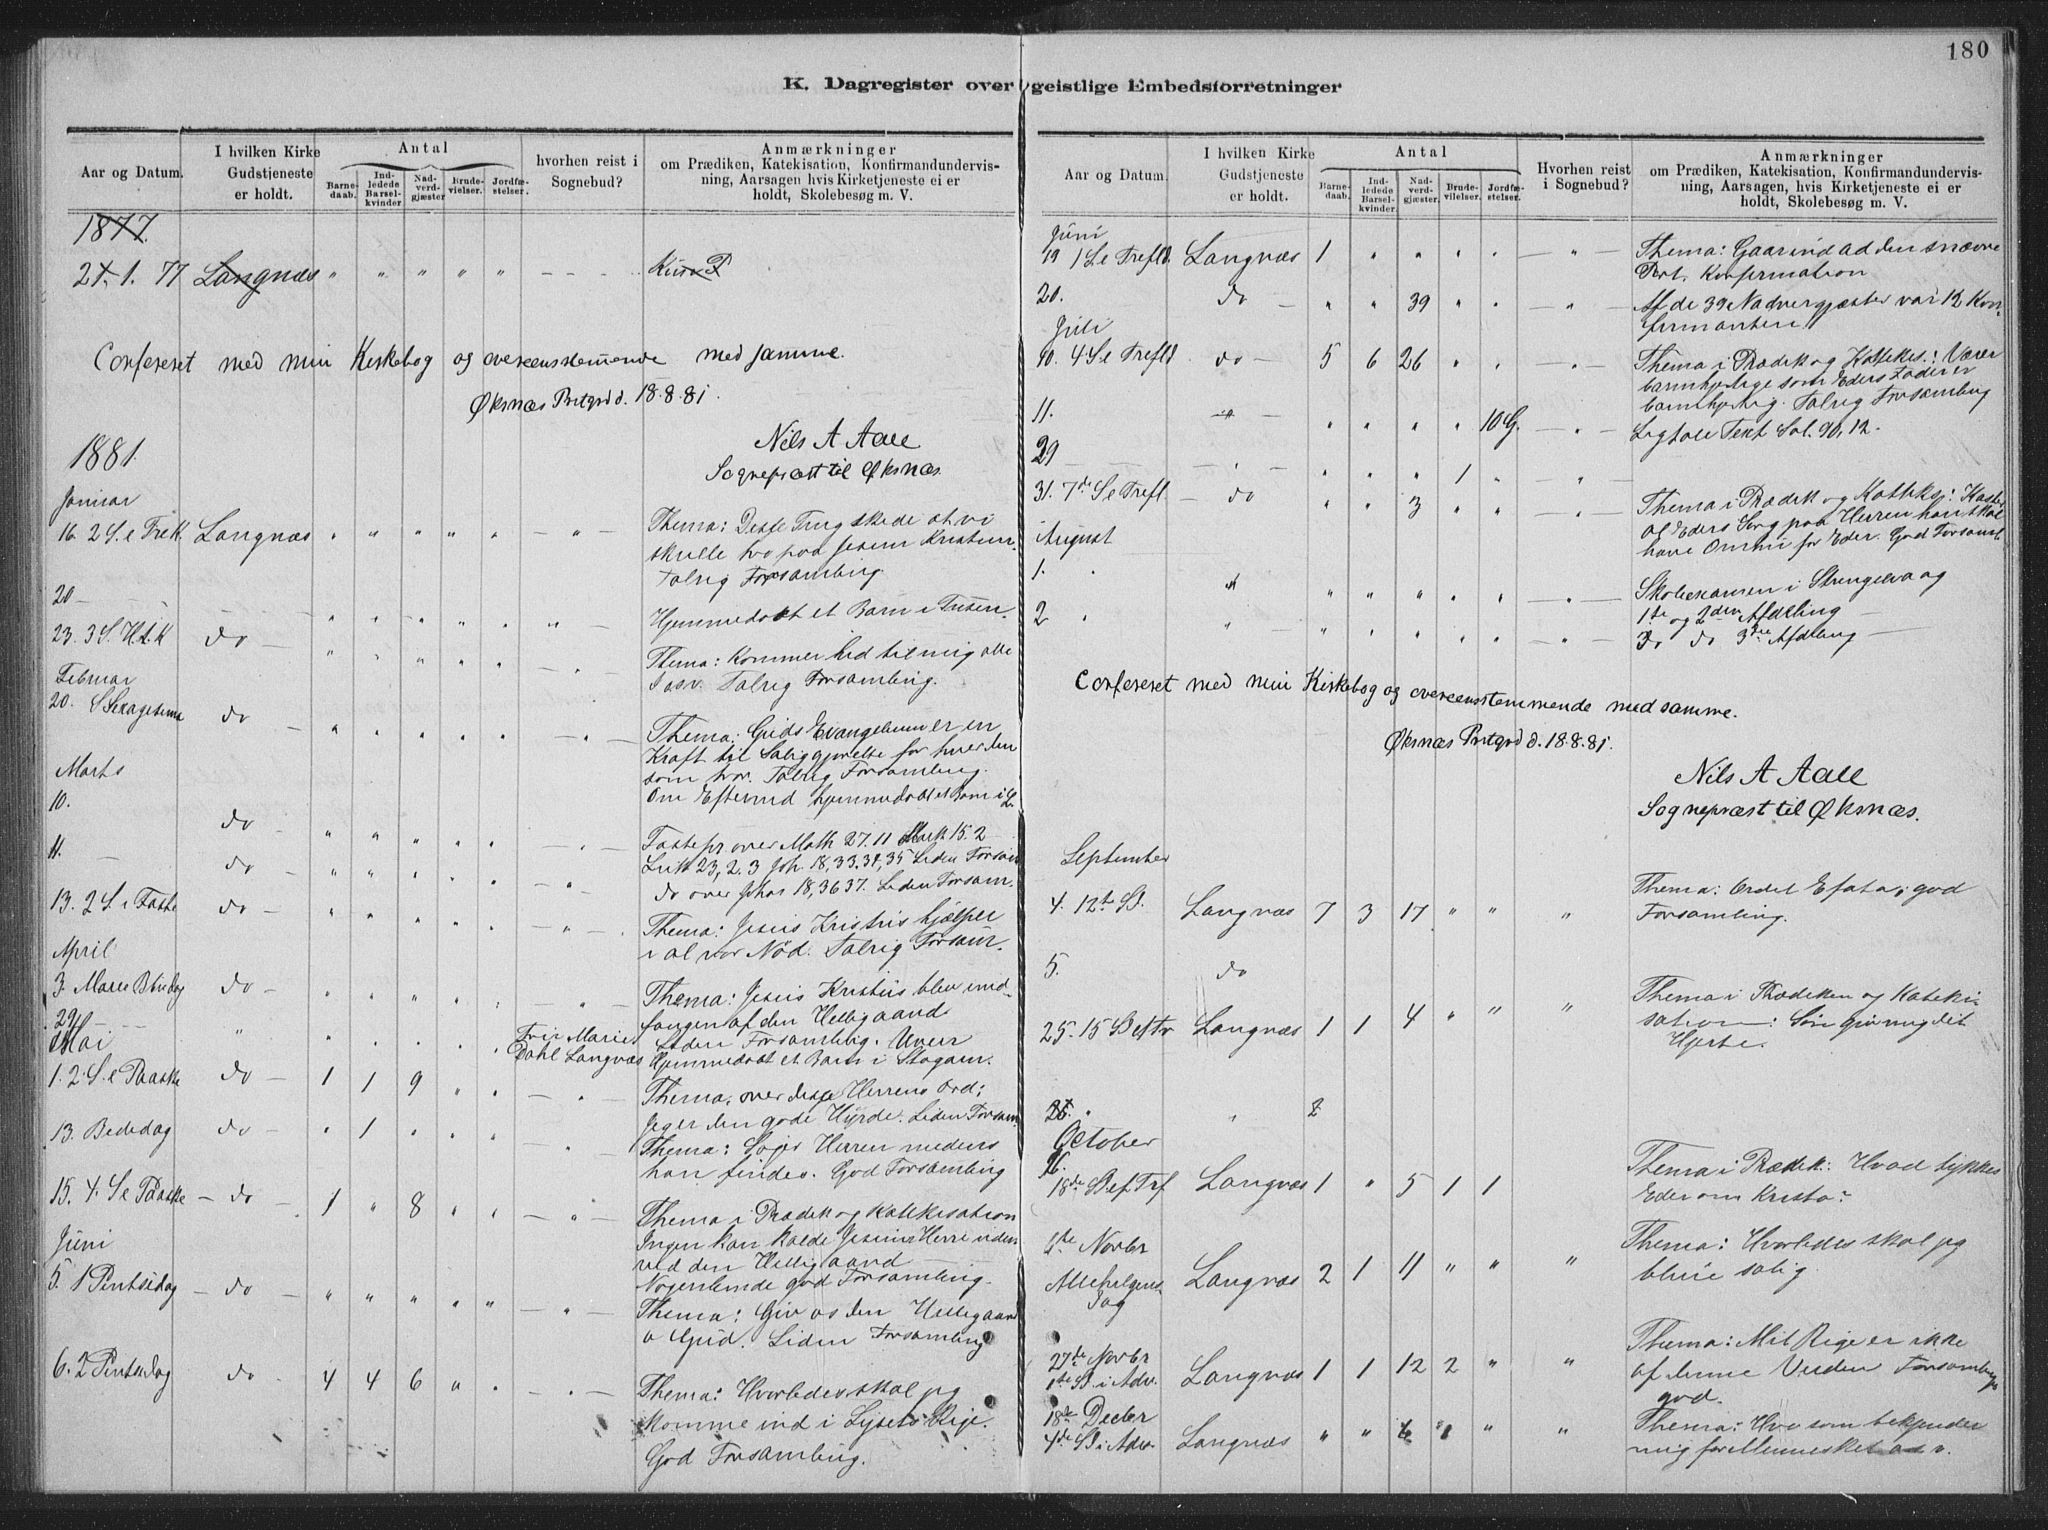 180
K. Dagregister over geistlige Embedsforretninger
Aar og Datum.
I hvilken Kirke Gudstjeneste er holdt.
Antal
Barnedaab.
Indledede Barselkvinder
Nadverdgjæster
Brudevielser.
Jordfæstelser.
hvorhen reist i Sognebud?
Anmærkninger
om Prædiken, Katekisation, Konfirmandundervisning, Aarsagen hvis Kirketjeneste ei er holdt, Skolebesøg m. V.
1877.
21.1.77 Langnæs " " " " "
Confereret med min Kirkebog og overeensstemmende med samme.
Øksnæs Prstgrd d. 18.8.81.
Nils A Aall
Sognepræst til Øksnæs.
1881.
Januar
16. 2 S. e Langnæs " " " " " — " — Thema: Dette Ting skede at vi
skulle tro paa Jesum Kristum.
Talrig Forsamling.
20 — " " " " " " Hjemmedøbt et Barn i
23. 3 S. H.3.K do " " " " " — " Thema: Kommer hid til mig alle
Talrig Forsamling.
Februar
20. S Sexagesima do — " " " " " — " — Thema: Guds Evangelium er en
Kraft til Saliggjørelse for hver den
som tror. Talrig Forsamling.
Om Eftermd hjemmedøbt et Barn i
Marts
10. do — " " " " " — " — Fastepr over Math 27.11 Mark 15.2
Luk 23, 2.3 Joh. 18, 33.34, 35 Liden Forsam
11. — do — " " " " " — " — do over Johs 18, 36 37. Liden Forsam.
13. 2 S. i Faste do — " " " " " — " — Thema: Jesus Kristus hjælper
i al vor Nød. Talrig Forsam.
April
3. Marie Bbudag do — " " " " " — " — Thema: Jesus Kristus blev und-
fangen af den Hellig aand
Liden Forsamlig.
29 — " " " " " " Marie
Dahl Langnæs Hjemmedøbt et Barn i
Mai
1. 2. S. e Paaske do — 1 1 9 " " — " Thema, over disse Herrens Ord;
Jeg er den gode Hyrde. Liden Forsam
13. Bededag do — " 1 " " " " Thema: Søger Herren medens
han findes. God Forsamling
15. 4. S e Paaske — do — 1 " 8 " " — " — Thema i Prædik og Katekisation
Ingen kan kalde Jesum Herre uden
ved den Hellig aand
Nogenlunde god Forsamling.
Juni
5. 1 Pintsedag — do — " " " " " — " — Thema: Giv os den Helligaand
o Gud. Liden Forsamling
6. 2 Pintsedag do — 4 4 6 " " — " — Thema: Hvorledes skal jeg
komme ind i Lysets Rige.
God Forsamling.
Aar og Datum.
I hvilken Kirke Gudstjeneste er holdt.
Antal
Barnedaab.
Indledede Barselkvinder
Nadverdgjæster.
Brudevielser.
Jordfæstelser.
Hvorhen reist i Sognebud?
Anmærkninger
om Prædiken, Katekisation, Konfirmandundervisning, Aarsagen, hvis Kirketjeneste ei er holdt, Skolebesøg m. V.
Juni
19 1 S e Trefld. Langnæs 1 " " " " — " — Thema: Gaar ind ad den snævre
Port. Konfirmation
20. do — " " 39 " " — " — Af de 39 Nadvergjæster var 12 Kon-
firmanter
Juli
10. 4 S e Trefld do — 5 6 26 " " — " — Thema i Prædik og Katekis.: Værer
barmhjertige som Eders Fader er
barmhjertig. Talrig Forsamling
11. — " — " " " " 10 G. — " — Ligtale Text Sal. 90, 12.
29 — " — " " " 1 " — " —
31. 7de S e Trefl. — do " " 3 " " — " — Thema i Prædik og Kateks: Kaster
al Eders Sorg paa Herren han skal
have Omhu for Eder. God Forsaml.
August
1. " " " " " " " — " — Skoleexamen i Strengelvaag
1ste og 2den Afdeling —
2 " " — " " " " " — " — do do 3die Afdeling —
Confereret med min Kirkebog og overeensstemmende med samme.
Øksnæs Prstgrd d. 18.8.81.
Nils A Aall
Sognepræst til Øksnæs.
September
4. 12te S. Langnæs 7 3 17 " " " Thema: Ordet Efata; god
Forsamling.
5. do
25. 15 S ef Tr Langnæs 1 1 4 " " " Thema i Prædiken og Kateki-
sation: Søn giv mig dit
Hjerte.
26. " " 2
October
16.
18de S ef Trf Langnæs 1 " 5 1 1 Thema i Prædik: Hvad tykkes
Eder om Kristo?
1ste Novbr
Allehelgens Dag Langnæs 2 1 11 " " " Thema: Hvorledes skal jeg
blive salig.
27de Novbr
1ste S i Adv. Langnæs 1 1 12 2 " " Thema: Mit Rige er ikke
af denne Verden Forsamlings
god.
18de Decbr
4de S i Adv. Langnæs " " 4 1 " " Thema: Hvo som bekjender
mig for Mennesket